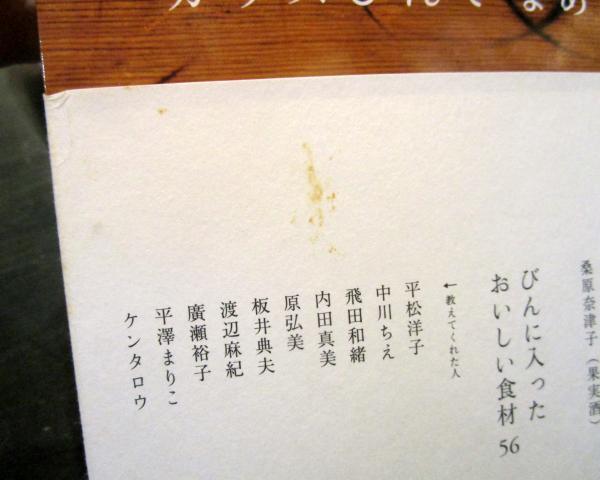 桑原奈津子（果実酒）
びんに入った
おいしい食材 56
←教えてくれた人
平松洋子
中川ちえ
飛田和緒
内田真美
原弘美
板井典夫
渡辺麻紀
廣瀬裕子
平澤まりこ
ケンタロウ